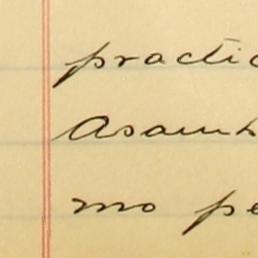 practic
Asaml
mo pe